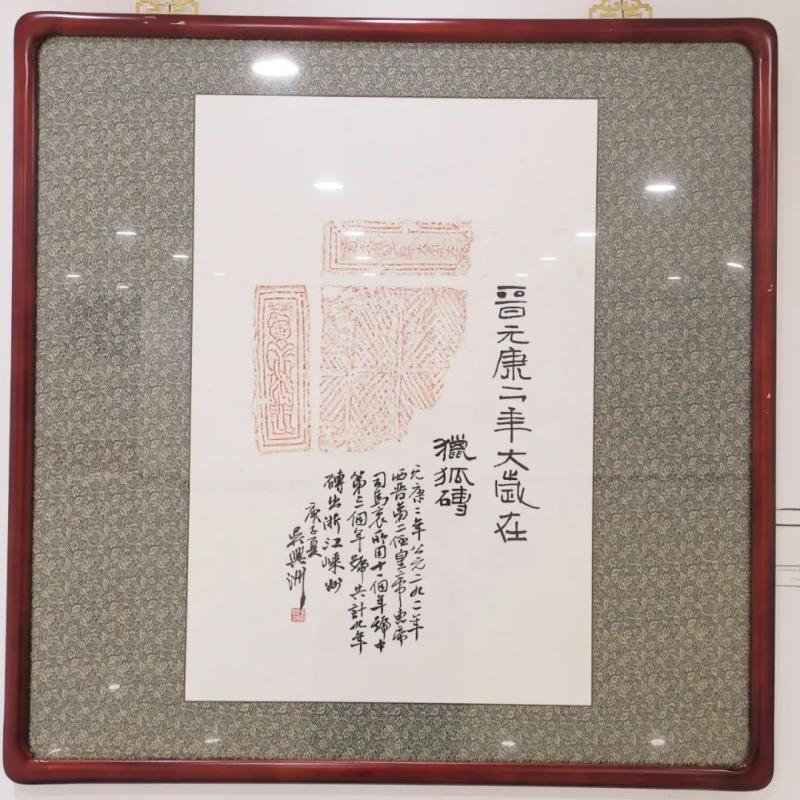 晋元康二年大歲在
獵狐磚
元康二年公元二九二年
西晋第二位皇帝惠帝
司馬衷所用十一個年號中
第三個年號共計九年
磚出浙江嵊州
庚子夏
吳興洲